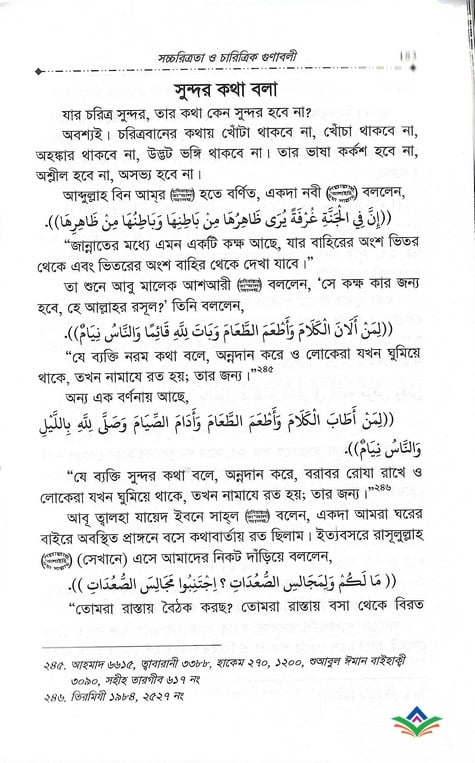 সচ্চরিত্রতা ও চারিত্রিক গুণাবলী
সুন্দর কথা বলা
যার চরিত্র সুন্দর, তার কথা কেন সুন্দর হবে না?
অবশ্যই। চরিত্রবানের কথায় খোঁটা থাকবে না, খোঁচা থাকবে না,
অহঙ্কার থাকবে না, উদ্ভট ভঙ্গি থাকবে না। তার ভাষা কর্কশ হবে না,
অশ্লীল হবে না, অসভ্য হবে না।
আব্দুল্লাহ বিন আম্‌র হতে বর্ণিত, একদা নবী বললেন,
((إِنَّ فِي الْجَنَّةِ غُرْفَةً يُرَى ظَاهِرُهَا مِنْ بَاطِنِهَا وَبَاطِنُهَا مِنْ ظَاهِرِهَا)).
“জান্নাতের মধ্যে এমন একটি কক্ষ আছে, যার বাহিরের অংশ ভিতর
থেকে এবং ভিতরের অংশ বাহির থেকে দেখা যাবে।”
তা শুনে আবু মালেক আশআরী বললেন, ‘সে কক্ষ কার জন্য
হবে, হে আল্লাহর রসূল?’ তিনি বললেন,
((لِمَنْ أَلَانَ الْكَلَامَ وَأَطْعَمَ الطَّعَامَ وَبَاتَ لِلَّهِ قَائِمًا وَالنَّاسُ نِيَامٌ)).
“যে ব্যক্তি নরম কথা বলে, অন্নদান করে ও লোকেরা যখন ঘুমিয়ে
থাকে, তখন নামাযে রত হয়; তার জন্য।”২৪৫
অন্য এক বর্ণনায় আছে,
((لِمَنْ أَطَابَ الْكَلَامَ وَأَطْعَمَ الطَّعَامَ وَأَدَامَ الصِّيَامَ وَصَلَّى لِلَّهِ بِاللَّيْلِ
وَالنَّاسُ نِيَامٌ)).
“যে ব্যক্তি সুন্দর কথা বলে, অন্নদান করে, বরাবর রোযা রাখে ও
লোকেরা যখন ঘুমিয়ে থাকে, তখন নামাযে রত হয়; তার জন্য।”২৪৬
আবূ ত্বালহা যায়েদ ইবনে সাহ্‌ল বলেন, একদা আমরা ঘরের
বাইরে অবস্থিত প্রাঙ্গনে বসে কথাবার্তায় রত ছিলাম। ইত্যবসরে রাসূলুল্লাহ
(সেখানে) এসে আমাদের নিকট দাঁড়িয়ে বললেন,
((مَا لَكُمْ وَلِمَجَالِسِ الصُّعُدَاتِ ؟ اِجْتَنِبُوا مَجَالِسَ الصُّعُدَاتِ )).
“তোমরা রাস্তায় বৈঠক করছ? তোমরা রাস্তায় বসা থেকে বিরত
২৪৫. আহমাদ ৬৬১৫, ত্বাবারানী ৩৩৮৮, হাকেম ২৭০, ১২০০, শুআবুল ঈমান বাইহাক্বী
৩০৯০, সহীহ তারগীব ৬১৭ নং
২৪৬. তিরমিযী ১৯৮৪, ২৫২৭ নং